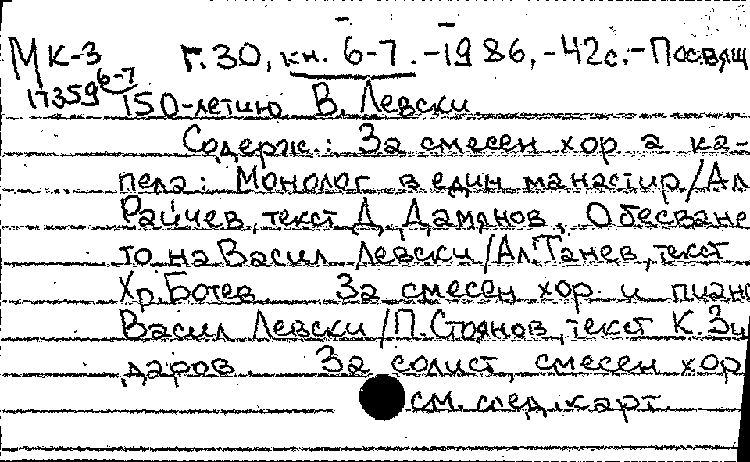 МК-3 г.30, кн. 6-7. -1986, -42с.- Посвящ
17359 6-7 150-летию В. Левски
Содерж.: За смесен хор а ка-
пела: Монолог в един манастир/Ал
Райчев, текст Д. Дамянов, Обесване
то на Васил Левски/Ал.Танев, текст
Хр.Ботев. За смесен хор и пиано
Васил Левски/П.Стоянов, текст К.Зи
даров. За солист, смесен хор
см. след. карт.